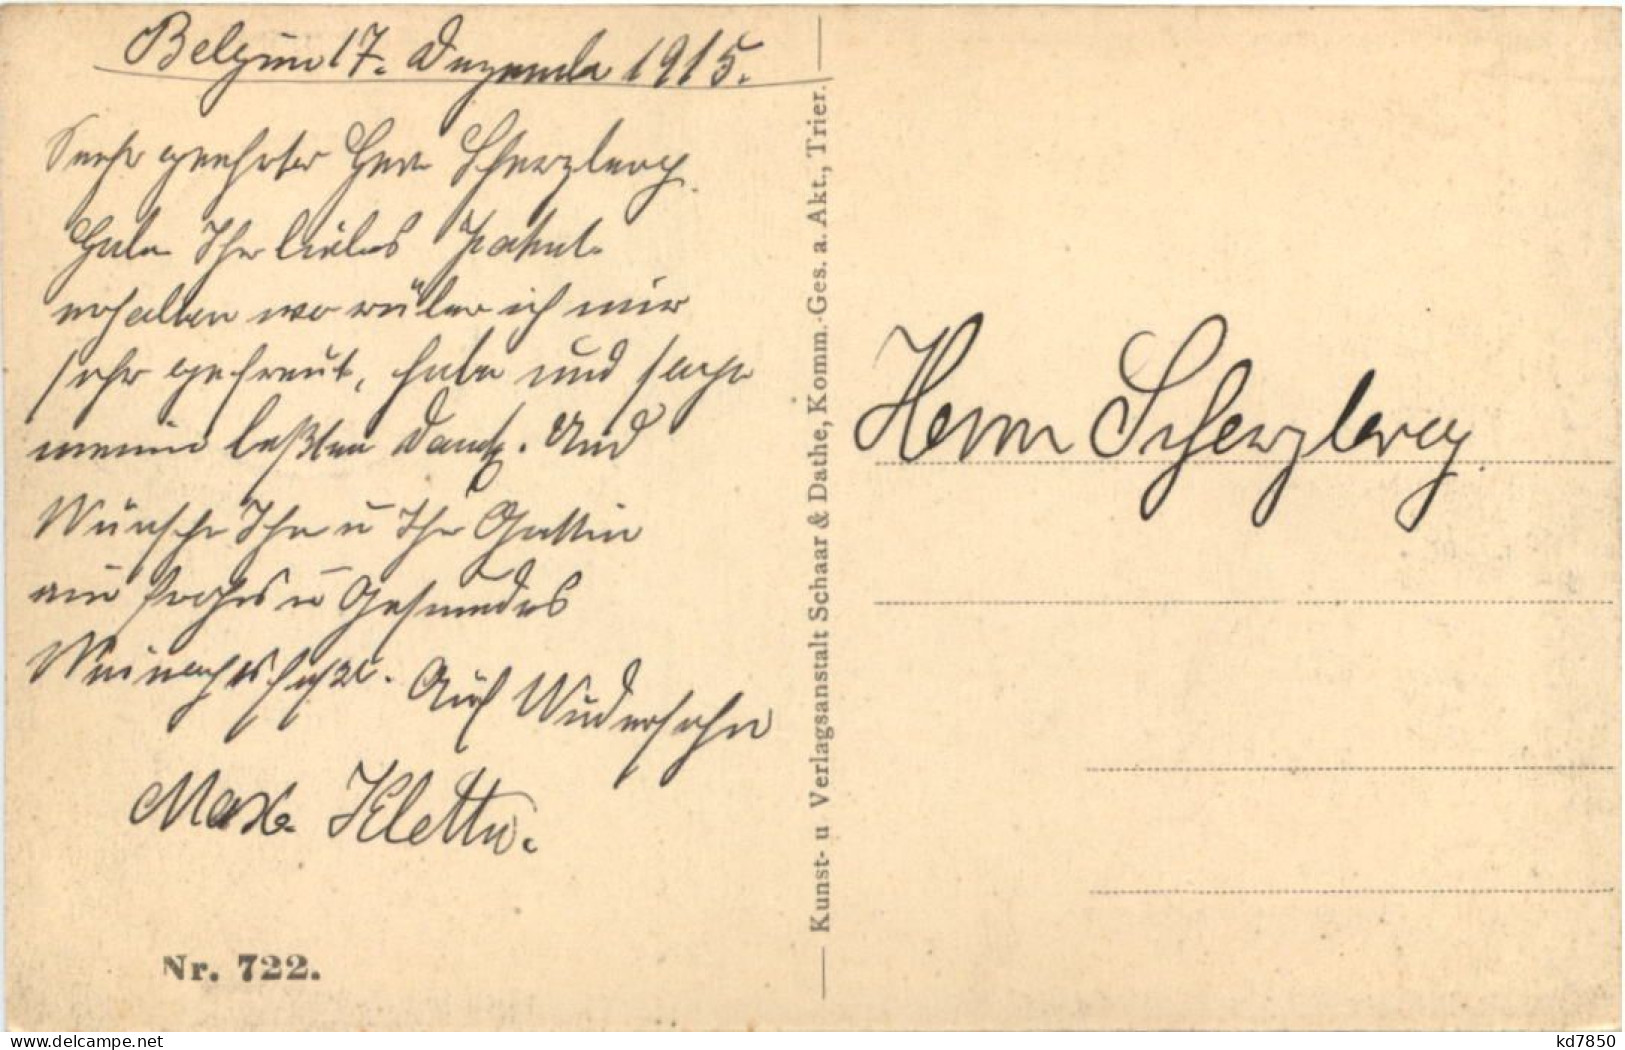 Belgien 17. Dezember 1915.
Sehr geehrter Herr Scherzberg.
Habe Ihr liebes Paket
erhalten wo rüber ich mir
sehr gefreut, habe und sage
meinen besten Dank. Und
Wünsche Ihn u Ihr Gattin
ein frohes u Gesundes
Weinachtsfest. Auf Widersehn
Max Klette.
Nr. 722.
Kunst- u Verlagsanstalt Schaar & Dathe, Komm.-Ges. a. Akt., Trier.
Herrn Scherzberg.
kd7850